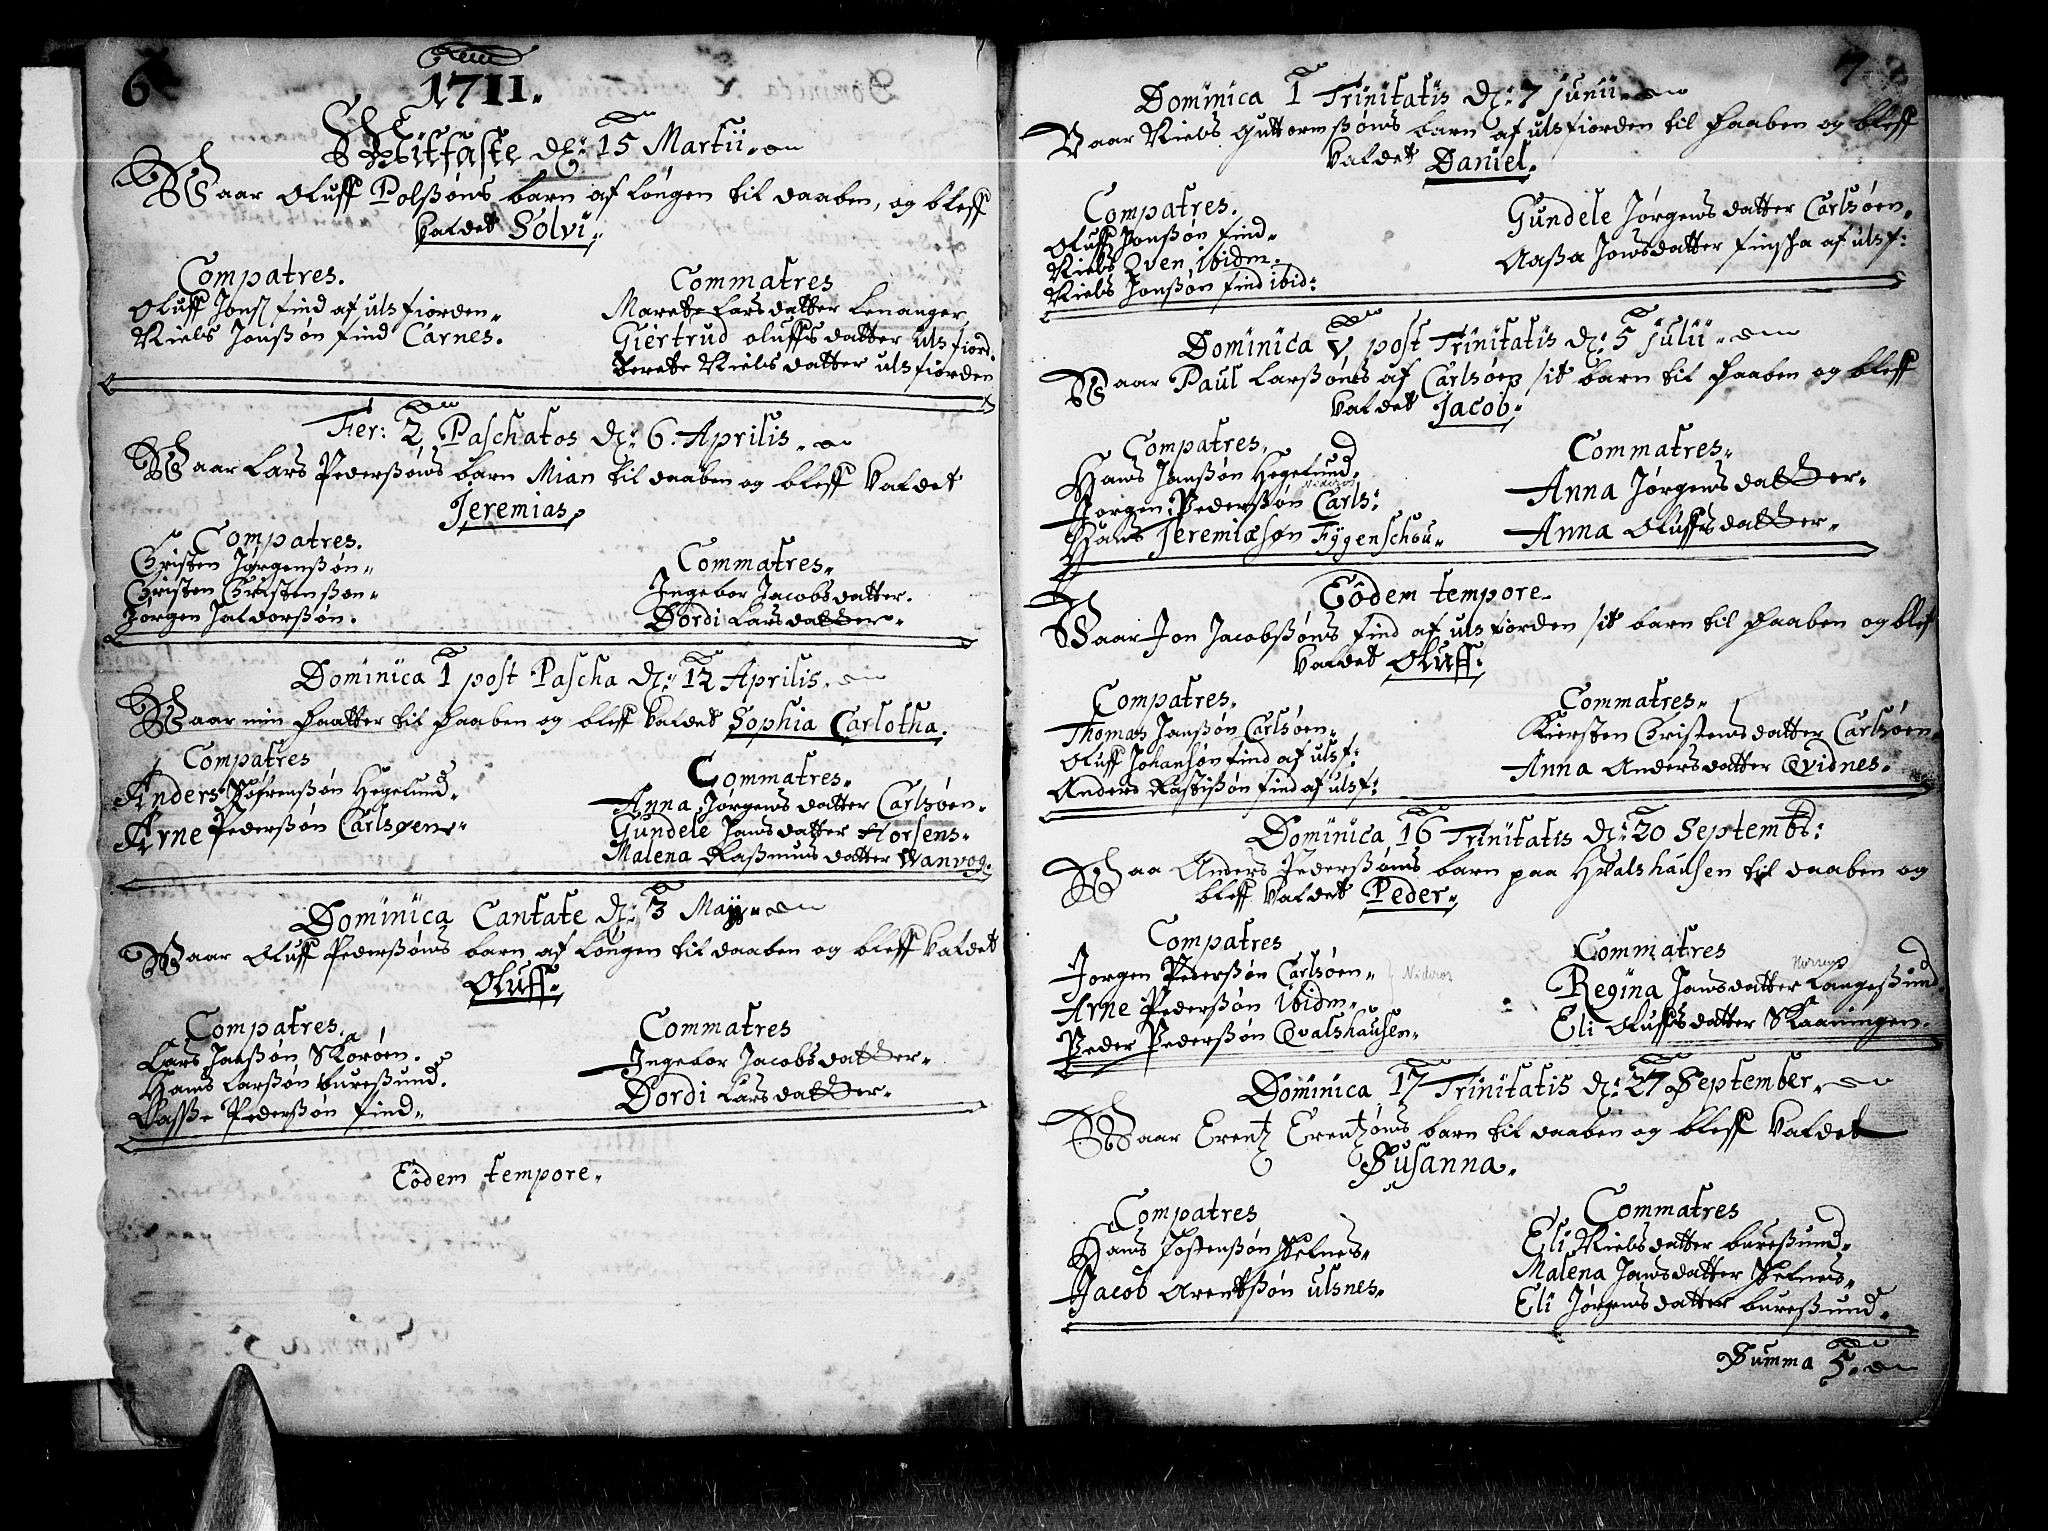 6
1711.
Mitfaste d: 15 Martii.
Waar Oluff Polssøns barn af Lòngen til daaben, og bleff
kaldet Solvi.
Compatres.
Oluff Jonss find af ulsfiorden.
Niels Jonssøn find Carnes.
Commatres
Marete Larsdatter Lenanger
Giertrud oluffsdatter ulsfiord.
Berete Nielsdatter ulsfiorden
Fer: 2 Paschatos d: 6. Aprilis.
Waar Lars Pederssøns barn Mian til daaben og bleff kaldet
Jeremias.
Compatres.
Christen Jørgenssøn.
Christen Christenssøn.
Jørgen Haldorssøn.
Commatres.
Ingebor Jacobsdatter.
Dordi Larsdatter.
Dominica 1 post Pascha d: 12 Aprilis.
Waar min Daatter til Daaben og bleff kaldet Sophia Carlotha.
Compatres
Anders Hegelund.
Arne Pederssøn Carlsøen.
Commatres.
Anna Jørgensdatter Carlsøen.
Gundele Jansdatter Horsens.
Malena Rassmusdatter Wanvog.
Dominica Cantate d: 3 Maij.
Waar Oluff Pederssøns barn af Longen til daaben og bleff kaldet
Oluff.
Compatres.
Lars Janssøn Skorøen.
Hans Larssøn buressund.
Passke Pederssøn find.
Commatres
Ingebor Jacobsdatter.
Dordi Larsdatter.
Eòdem tempore.
7
Dominica 1 Trinitatis d: 7 Junii.
Waar Niels Guttormssøns barn af ulsfiorden til Daaben og bleff
kaldet Daniel.
Compatres.
Oluff Jonssøn find.
Niels Qven, ibidm.
Niels Jonssøn find ibid:
Gundele Jørgensdatter Carlsøen.
Aassa Jonsdatter finsha af ulsf:
Dominica V post Trinitatis d: 5 Julii.
Waar Paul Larssøns af Carlsøen sit barn til Daaben og bleff
kaldet Jacob.
Compatres.
Hans Janssøn Hegelund.
Nideros
Jørgen Pederssøn Carls:
Hans Jeremiæsøn Fygenschou.
Commatres.
Anna Jørgensdatter.
Anna Oluffsdatter.
Eòdem tempore.
Waar Jon Jacobssøns find af ulsfiorden sit barn til Daaben og blef
kaldet Oluff.
Compatres.
Thomas Janssøn Carlsøen.
Oluff Johansøn find af ulsf:
Anders Rastissøn find af ulsf:
Commatres.
Kiersten Christensdatter Carlsøen.
Anna Andersdatter Qvidnes.
Dominica 16 Trinitatis d: 20 Septembr:
Waa Anders Pederssøns barn paa Hvalshausen til daaben og
bleff kaldet Peder.
Compatres
Jorgen Pederssøn Carlsøen. } Nideros
Arne Pederssøn ibidm.
Peder Pederssøn Qvalshausen.
Commatres
Regina Jansdatter Langessund
Eli Oluffsdatter Skaaningen.
Dominica 17 Trinitatis d: 27 September.
Waar Erentz Erentzøns barn til daaben og bleff kaldet
Susanna.
Compatres
Hans Jostenssøn Helnes.
Jacob Arentssøn ulsnes.
Commatres
Eli Nielsdatter buressund.
Malena Jansdatter Helnes.
Eli Jørgensdatter buressund.
Summa 5.